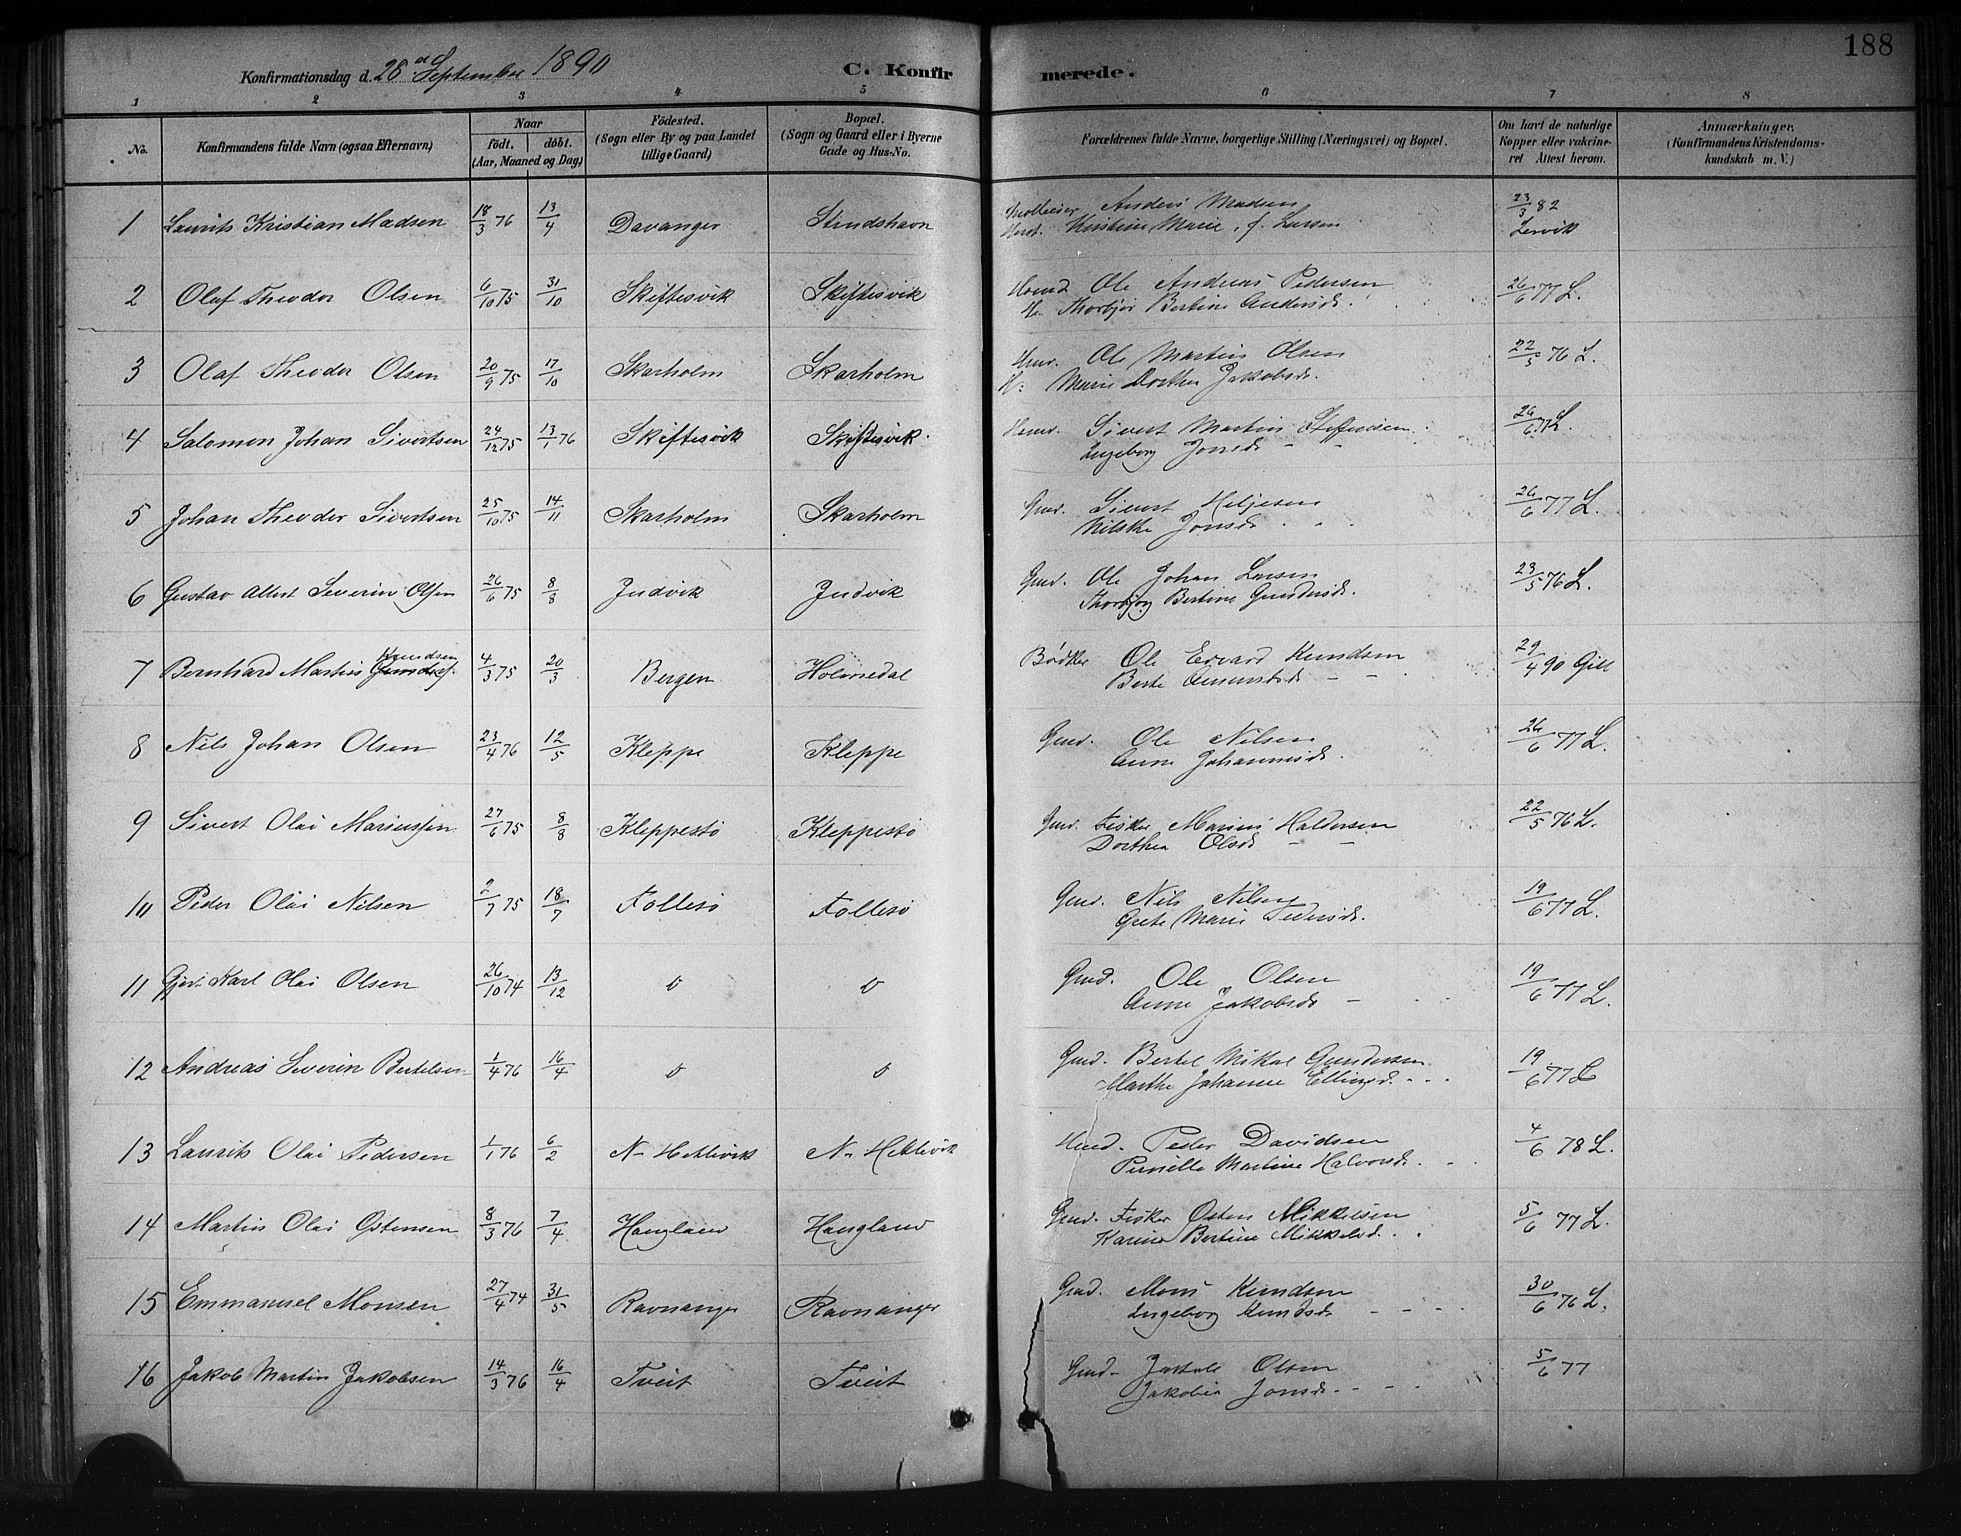 188
Konfirmationsdag d. 28de September 1890
C. Konfirmerede.
1 2 3 4 5 6 7 8
No.
Konfirmandens fulde Navn (ogsaa Efternavn)
Naar
født. døbt.
(Aar, Maaned og Dag)
Fødested.
(Sogn eller By og paa Landet
tillige Gaard)
Bopæl.
(Sogn og Gaard eller i Byerne
Gade og Hus-No.
Forældrenes fulde Navne, borgerlige Stilling (Næringsvei) og Bopæl.
Om havt de naturlige
Kopper eller vakcine-
ret Attest herom.
Anmærkninger,
(Konfirmandens Kristendoms-
kundskab m. V.)
1 Laurits Kristian Madsen 18/3 76 13/4 Davanger Strudshavn Anders Madsen 23/3 82
Kristine Marie, f. Larsen Lervik
2 Olaf Theodor Olsen 6/10 75 31/10 Skiftesvik Skiftesvik Ole Andreas Pedersen 26/6 77 L.
Thorbjør Bertine Andersd.
3 Olaf Theodor Olsen 20/9 75 17/10 Skarholm Skarholm Ole Martin Olsen 22/5 76 L.
Marie Dorthea Jakobsd.
4 Salomon Johan Sivertsen 24/12 75 13/1 76 Skiftesvik Skiftesvik Sivert Martin Steffensen 26/6 77 L.
Ingeborg Jonsd.
5 Johan Theodor Sivertsen 25/10 75 14/11 Skarholm Skarholm Gmd. Sivert Heljesen 26/6 77 L.
Jonsd.
6 Gustav Albert Severin Olsen 26/6 75 8/8 Judvik Judvik Gmd. Ole Johan Larsen 23/5 76 L.
Thorbjørg Bertine Gundersd.
7 Bernhard Martin Knudsen 4/3 75 20/3 Bergen Holmedal Bødker Ole Edvard Knudsen 29/4 90 Gill
Berte
8 Nils Johan Olsen 23/4 76 12/5 Kleppe Kleppe Gmd. Ole Nilsen 26/6 77 L.
Anne Johannesd.
9 Sivert Olai Mariussen 27/6 75 8/8 Kleppestø Kleppestø Gmd. Fisker Marius Haldorsen 22/5 76 L.
Dorthea Olsd.
10 Peder Olai Nilsen 2/7 75 18/7 Follesø Follesø Gmd. Nils Nilsen 19/6 77 L.
Grete Marie Pedersd.
11 Gjert Karl Olai Olsen 26/10 74 13/12 " " Gmd. Ole Olsen 19/6 77 L.
Anne Jakobsd.
12 Andreas Severin Bertelsen 1/4 76 16/4 " " Gmd. Bertel Mikal Gundersen 19/6 77 L
Marthe Johanne Ellingsd.
13 Laurits Olai Pedersen 1/1 76 6/2 N. Hetlevik N. Hetlevik Hmd. Peder Davidsen 4/6 78 L.
Pernille Martine Halvorsd.
14 Martin Olai Østensen 8/3 76 7/4 Haugland Haugland Gmd. Fisker Østen Mikkelsen 5/6 77 L.
Karina Bertine Mikkelsd.
15 Emmanuel Monsen 27/4 74 31/5 Ravnanger Ravnanger Gmd. Mons Knudsen 30/6 76 L.
Ingeborg Knudsd.
16 Jakob Martin Jakobsen 14/3 76 16/4 Tveit Tveit Gmd. Olsen 5/6 77
Jakobia Jonsd.